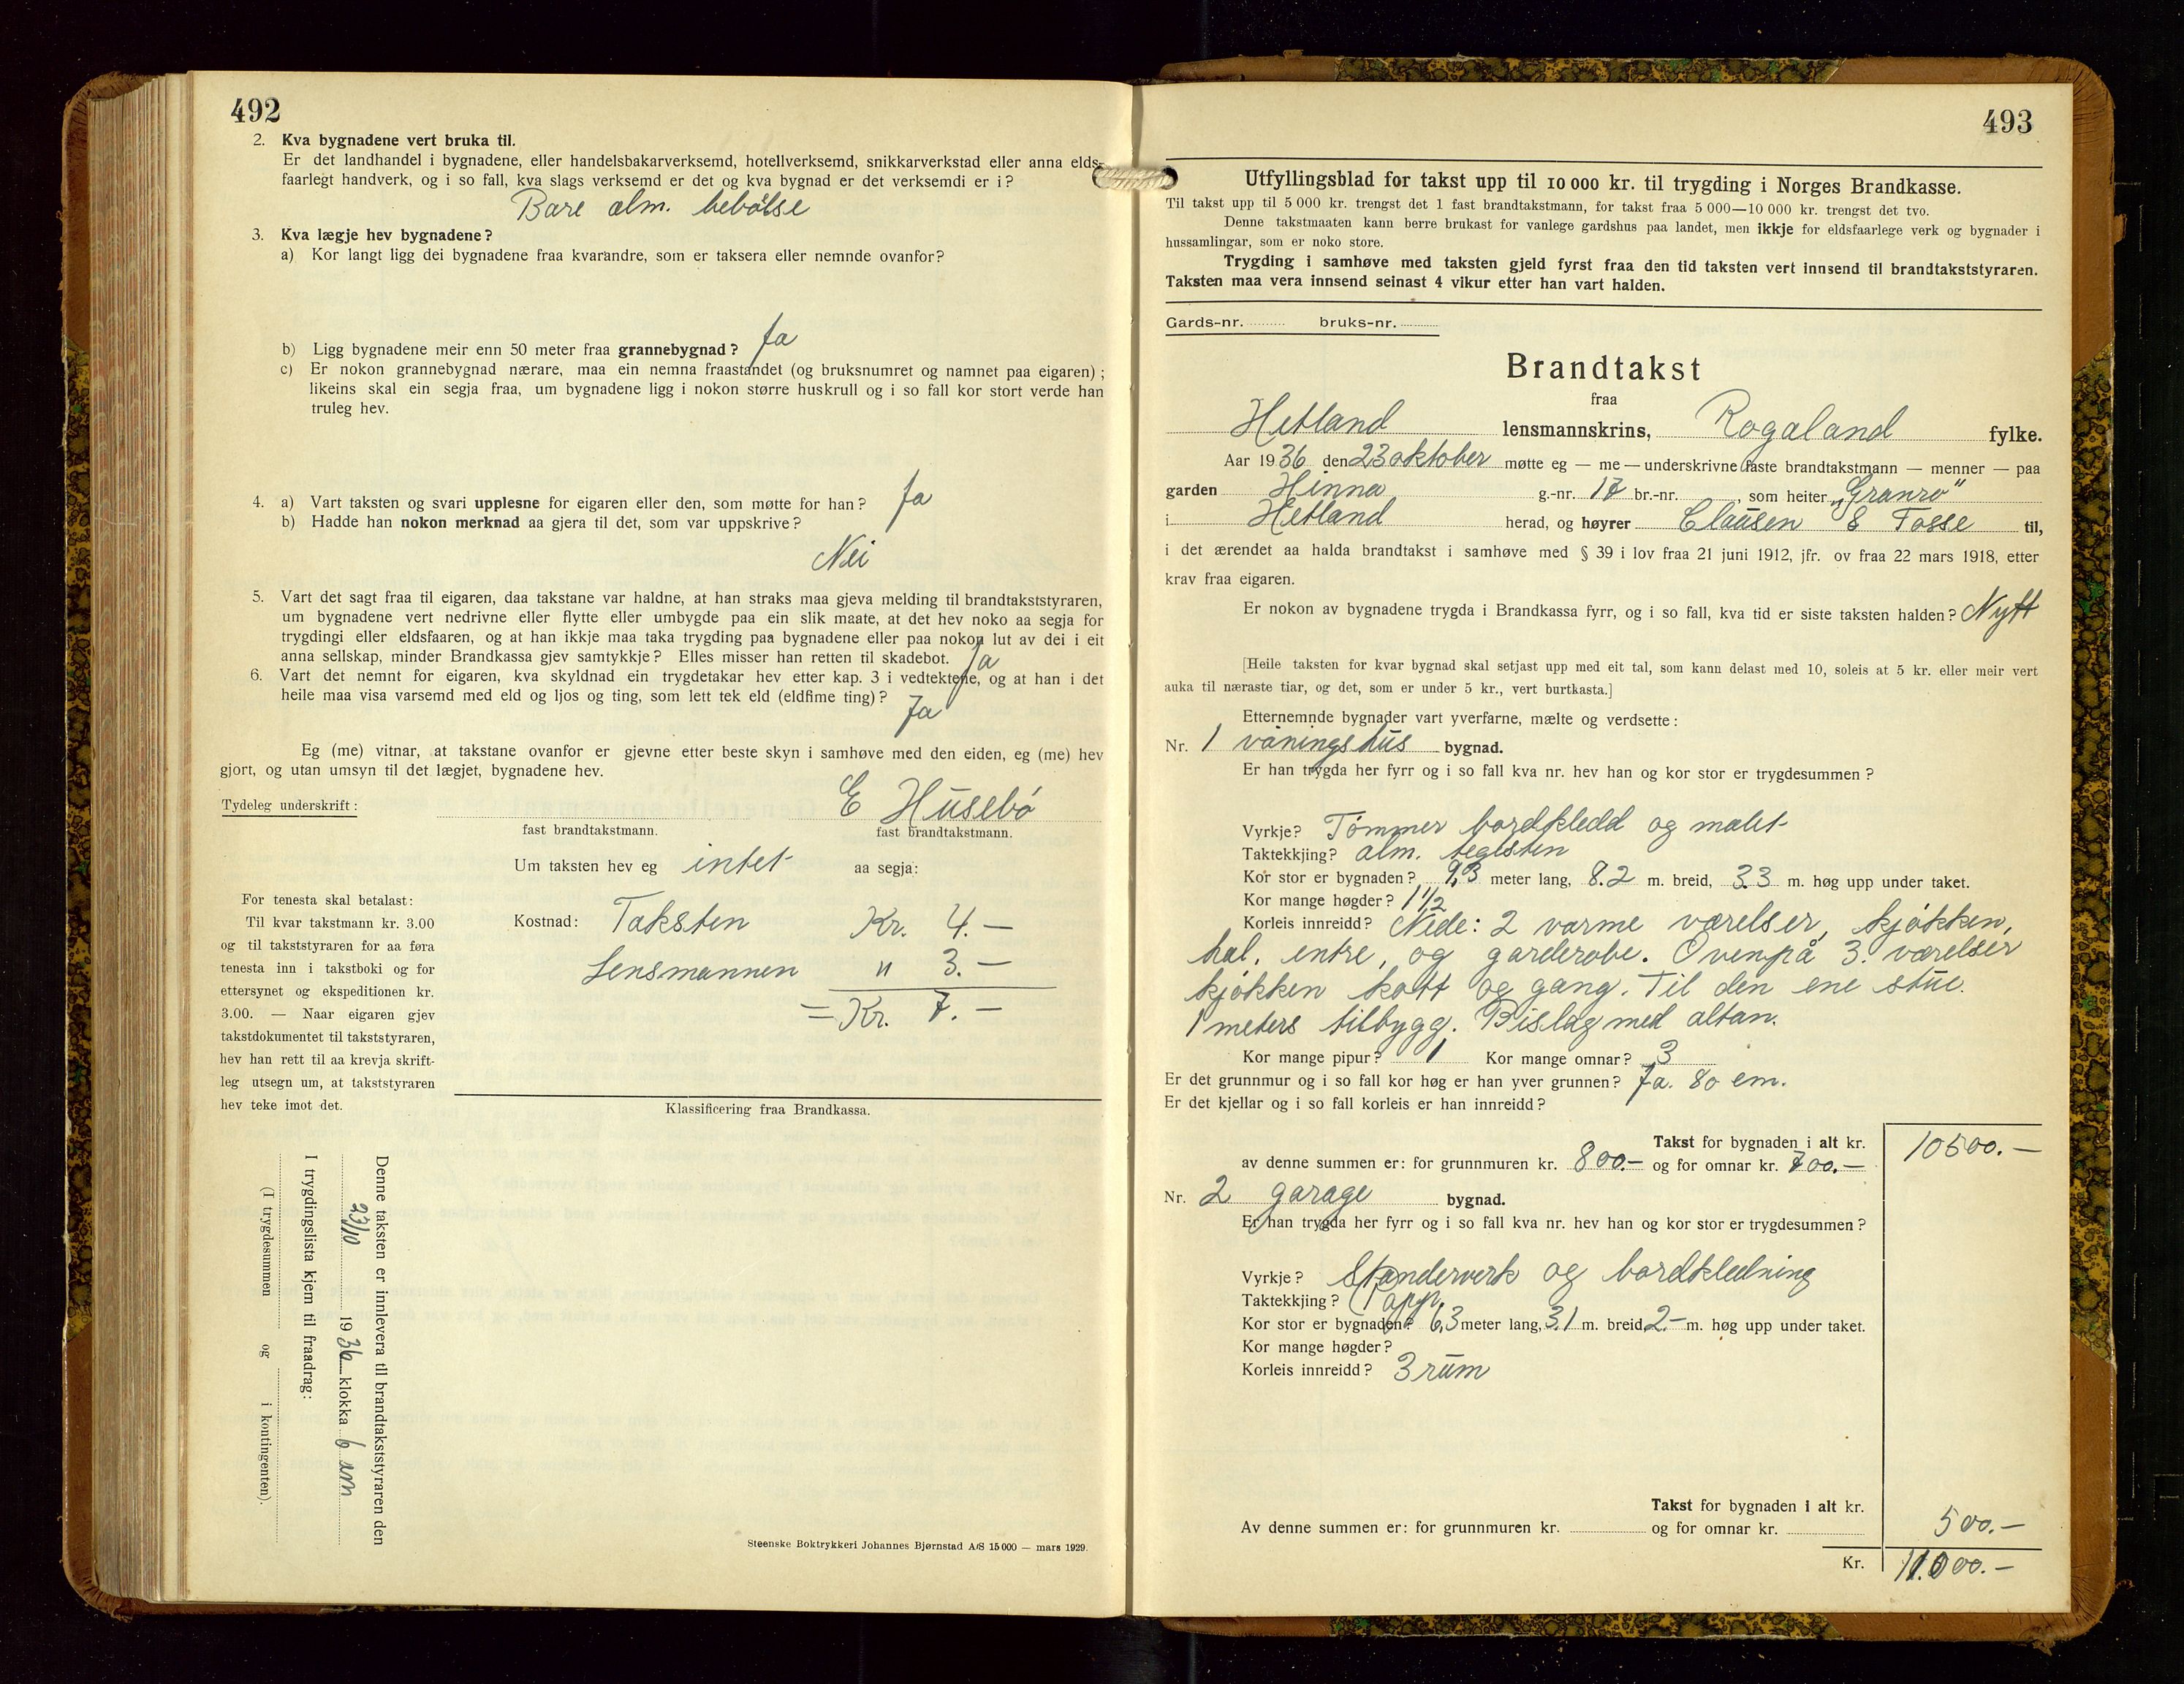 492
2. Kva bygnadene vert bruka til.
Er det landhandel i bygnadene, eller handelsbakarverksemd, hotellverksemd, snikkarverkstad eller anna elds-
faarlegt handverk, og i so fall, kva slags verksemd er det og kva bygnad er det verksemdi er i?
Bare alm. bebølse
3. Kva lægje hev bygnadene?
a) Kor langt ligg dei bygnadene fraa kvarandre, som er taksera eller nemnde ovanfor?
b) Ligg bygnadene meir enn 50 meter fraa grannebygnad? Ja
c) Er nokon grannebygnad nærare, maa ein nemna fraastandet (og bruksnumret og namnet paa eigaren);
likeins skal ein segja fraa, um bygnadene ligg i nokon større huskrull og i so fall kor stort verde han
truleg hev.
4. a) Vart taksten og svari upplesne for eigaren eller den, som møtte for han? Ja
b) Hadde han nokon merknad aa gjera til det, som var uppskrive?
Nei
5. Vart det sagt fraa til eigaren, daa takstane var haldne, at han straks maa gjeva melding til brandtakststyraren,
um bygnadene vert nedrivne eller flytte eller umbygde paa ein slik maate, at det hev noko aa segja for
trygdingi eller eldsfaaren, og at han ikkje maa taka trygding paa bygnadene eller paa nokon lut av dei i eit
anna sellskap, minder Brandkassa gjev samtykkje? Elles misser han retten til skadebot. Ja
6. Vart det nemnt for eigaren, kva skyldnad ein trygdetakar hev etter kap. 3 i vedtektene, og at han i det
heile maa visa varsemd med eld og ljos og ting, som lett tek eld (eldfime ting)?
Ja
Eg (me) vitnar, at takstane ovanfor er gjevne etter beste skyn i samhøve med den eiden, eg (me) hev
gjort, og utan umsyn til det lægjet, bygnadene hev.
Tydeleg underskrift: E Husebø
fast brandtakstmann. fast brandtakstmann.
Um taksten hev eg intet aa segja:
For tenesta skal betalast:
Til kvar takstmann kr. 3.00
og til takststyraren for aa føra
tenesta inn i takstboki og for
ettersynet og ekspeditionen kr.
3.00. — Naar eigaren gjev
takstdokumentet til takststyraren,
hev han rett til aa krevja skrift-
leg utsegn um, at takststyraren
hev teke imot det.
Kostnad: Taksten Kr. 4.—
Lensmannen " 3.—
= Kr. 7.—
Klassificering fraa Brandkassa.
Denne taksten er innlevera tll brandtakststyraren den
23/10 1936 klokka 6 am
I trygdingslista kjem til fraadrag:
(I trygdesummen og i kontingenten).
Steenske Boktrykkeri Johannes Bjørnstad A/S 15000 — mars 1929.
493
Utfyllingsblad for takst upp til 10 000 kr. til trygding i Norges Brandkasse.
Til takst upp til 5 000 kr. trengst det 1 fast brandtakstmann, for takst fraa 5 000—10 000 kr. trengst det tvo.
Denne takstmaaten kann berre brukast for vanlege gardshus paa landet, men ikkje for eldsfaarlege verk og bygnader i
hussamlingar, som er noko store.
Trygding i samhøve med taksten gjeld fyrst fraa den tid taksten vert innsend til brandtakststyraren.
Taksten maa vera innsend seinast 4 vikur etter han vart halden.
Gards-nr. bruks-nr.
Brandtakst
fraa
Hetland lensmannskrins, Rogaland fylke.
Aar 1936 den 23 oktober møtte eg — me — underskrivne faste brandtakstmann — menner — paa
garden Hinna g.-nr. 17 br.-nr. , som heiter „Granro"
i Hetland herad, og høyrer Clausen & Fosse til,
i det ærendet aa halda brandtakst i samhøve med § 39 i lov fraa 21 juni 1912, jfr. ov fraa 22 mars 1918, etter
krav fraa eigaren.
Er nokon av bygnadene trygda i Brandkassa fyrr, og i so fall, kva tid er siste taksten halden? Nytt
[Heile taksten for kvar bygnad skal setjast upp med eit tal, som kann delast med 10, soleis at 5 kr. eller meir vert
auka til næraste tiar, og det, som er under 5 kr., vert burtkasta.]
Etternemnde bygnader vart yverfarne, mælte og verdsette:
Nr. 1 våningshus bygnad.
Er han trygda her fyrr og i so fall kva nr. hev han og kor stor er trygdesummen?
Vyrkje? Tømmer bordkledd og malet
Taktekkjing? alm. teglsten
Kor stor er bygnaden? 9,3 meter lang, 8.2 m. breid, 3.3 m. høg upp under taket.
Kor mange høgder? 1 1/2
Korleis innreidd? Nede: 2 varme værelser, kjøkken,
hal, entre, og garderobe. Ovenpå 3. værelser
kjøkken kott og gang. Til den ene stue.
1 meters tilbygg. Bislag med altan.
Kor mange pipur? 1 Kor mange omnar? 3
Er det grunnmur og i so fall kor høg er han yver grunnen? Ja. 80 cm.
Er det kjellar og i so fall korleis er han innreidd?
Takst for bygnaden i alt kr. 10500.—
av denne summen er: for grunnmuren kr. 800.— og for omnar kr. 700.—
Nr. 2 garage bygnad.
Er han trygda her fyrr og i so fall kva nr. hev han og kor stor er trygdesummen?
Vyrkje? Standerverk og bordkledning
Taktekkjing? Papp.
Kor stor er bygnaden? 6,3 meter lang, 3.1 m. breid 2.— m. høg upp under taket.
Kor mange høgder?
Korleis innreidd? 3 rum
Takst for bygnaden i alt kr.
Av denne summen er: for grunnmuren kr. og for omnar kr. 500.—
Kr. 11.000.—